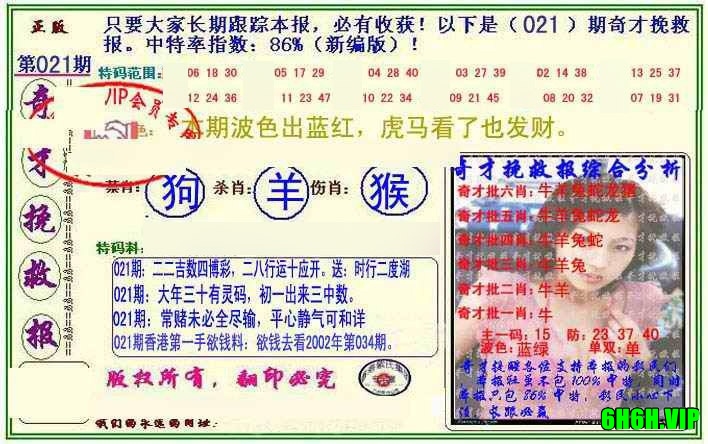 正版
只要大家长期跟踪本报，必有收获！以下是（021）期奇才挽救
报。中特率指数：86%（新编版）！
第021期
特码范围：
06 18 30 05 17 29 04 28 40 03 27 39 D2 14 38 13 25 37
12 24 36 11 23 47 10 22 34 09 21 45 08 20 32 07 19 31
VIP会员专
色：本期波色出蓝红，虎马看了也发财。
奇才挽救报
禁肖：狗 杀肖：羊 伤肖：猴
特码料：
021期：二二吉数四博彩，二八行运十应开。送：时行二度湖
021期：大年三十有灵码，初一出来三中数。
021期：常赌未必全尽输，平心静气可和详
021期香港第一手欲钱料：欲钱去看2002年第034期。
版权所有，翻印必究
我们的永远的网址：
奇才挽救报综合分析
奇才批六肖：牛羊兔蛇龙猪
奇才批五肖：牛羊兔蛇龙
奇才批四肖：牛羊兔蛇
奇才批三肖：牛羊兔
奇才批二肖：牛羊
奇才批一肖：牛
主一码：15 防：23 37 40
波色：蓝绿 单双：单
奇才提醒各位支持本报的彩民们
本报狂虽不包100%中特，同时
本报只包86%中特，彩民小心下
注，长跟必赢
6H6H.VIP